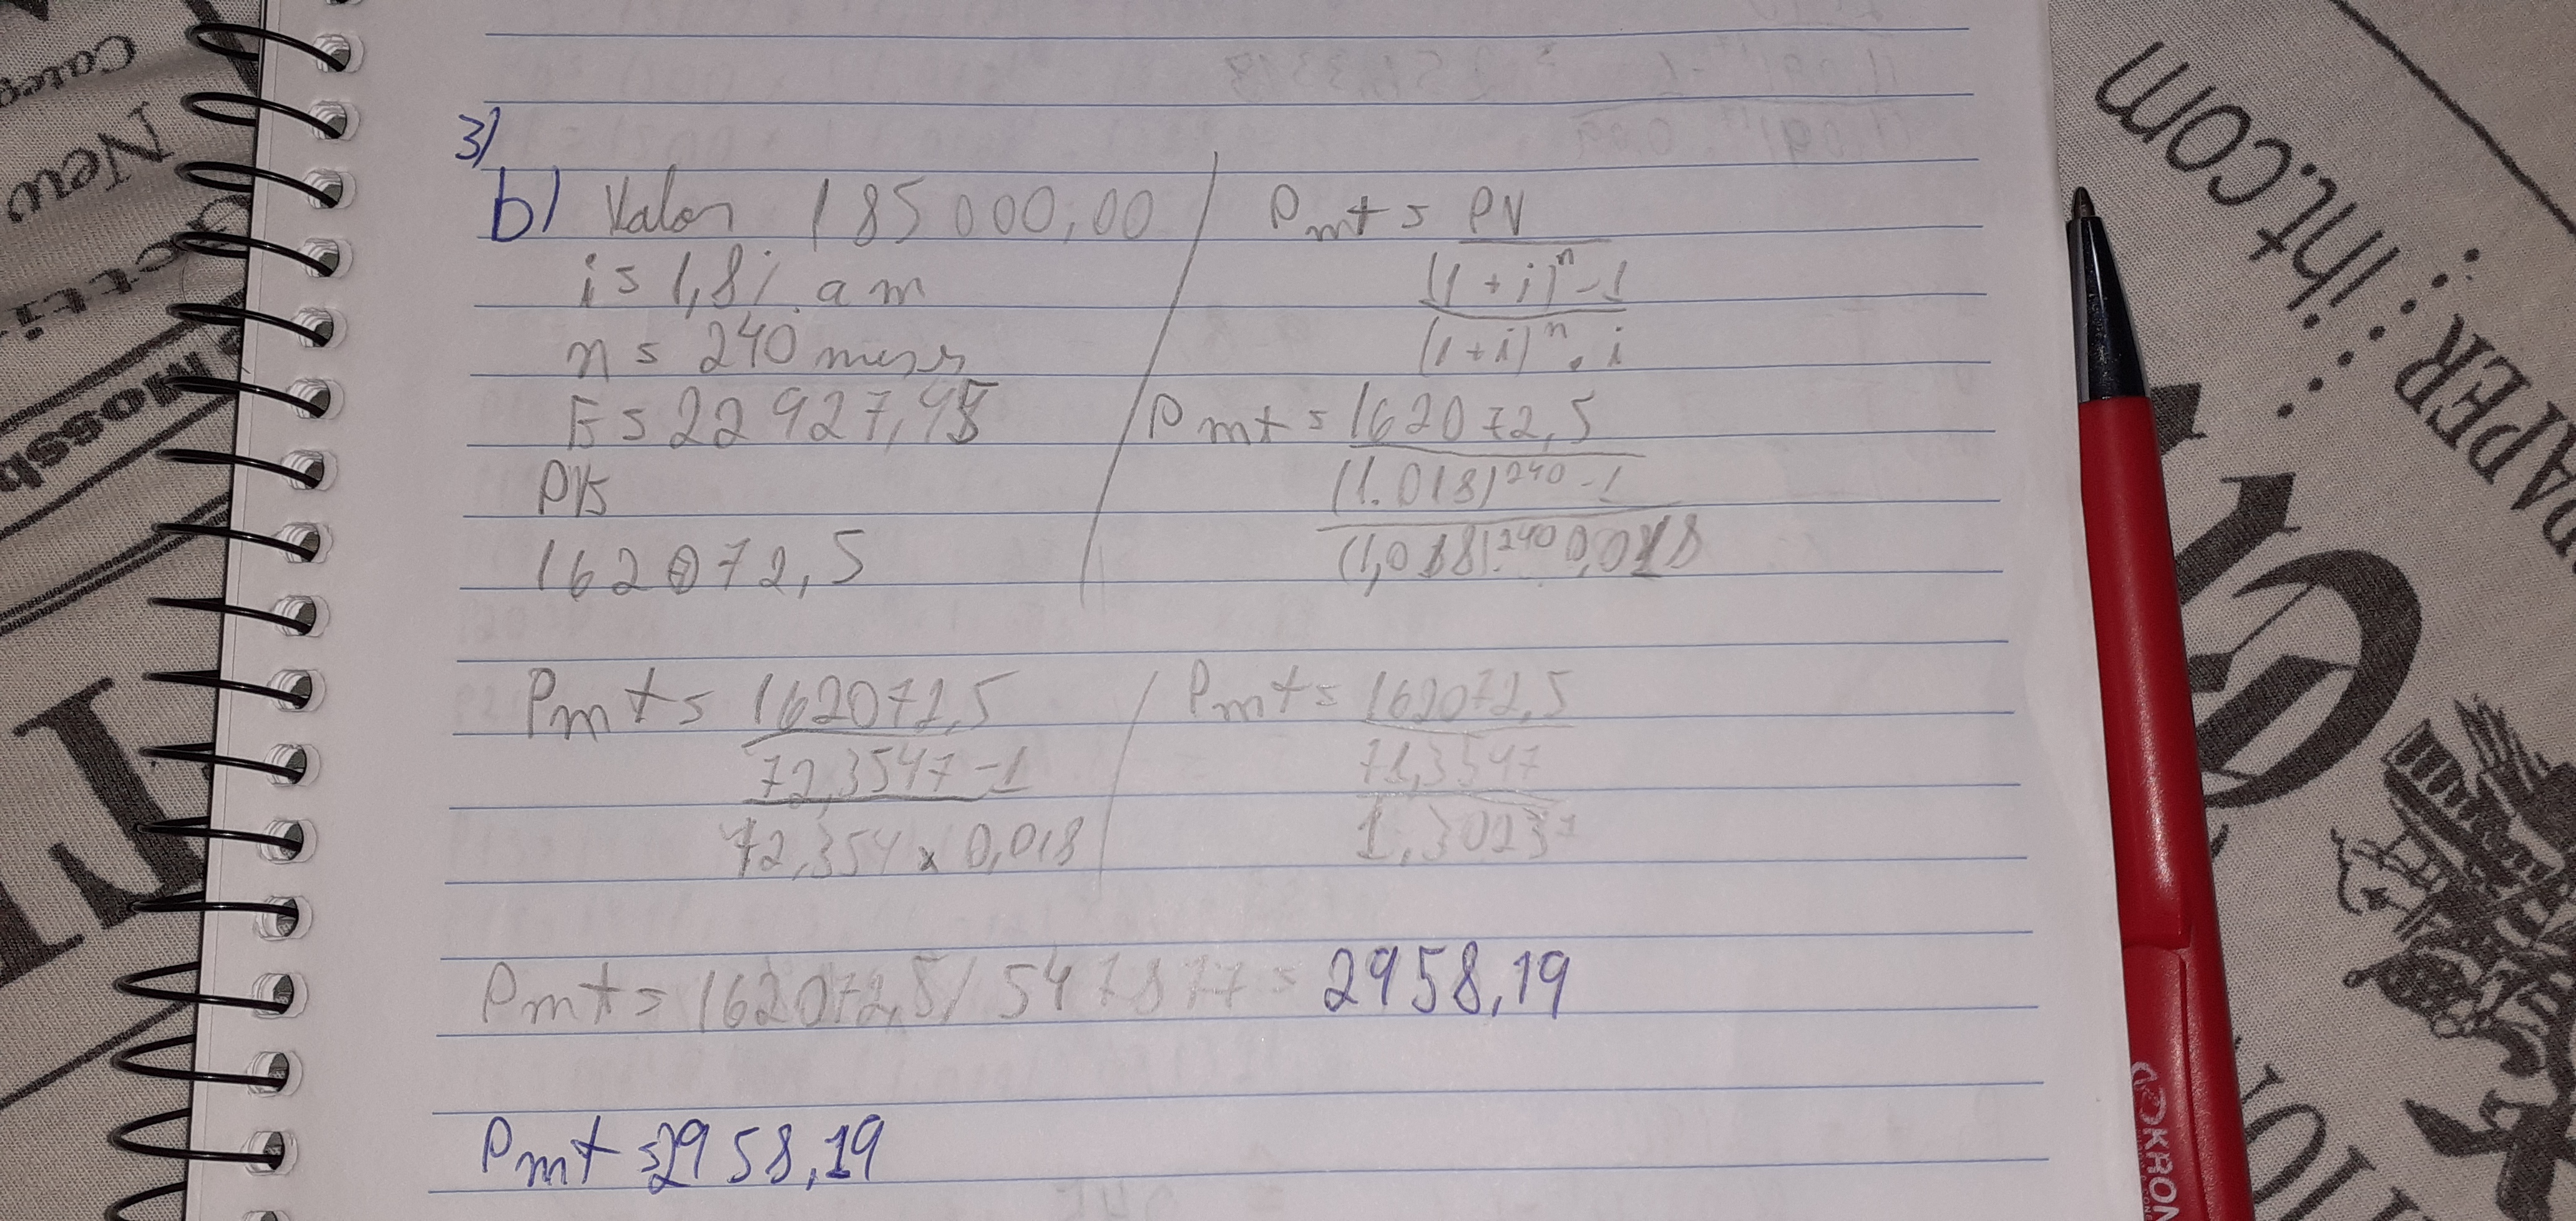 3)
b) Valor 185000,00
i = 1,8% a m
n = 240 meses
E = 22 927,48
PV=
162072,5
Pmt = PV
(1+i)^n -1
(1+i)^n . i
Pmt = 162072,5
(1.018)^240 -1
(1,018)^240 . 0,018
Pmt = 162072,5
72,3547 -1
72,354 x 0,018
Pmt = 162072,5
71,3547
1,3023
Pmt = 162072,5 / 547877 = 2958,19
Pmt = 2958,19
iht.com
PAPER
New
Mossb
KRON